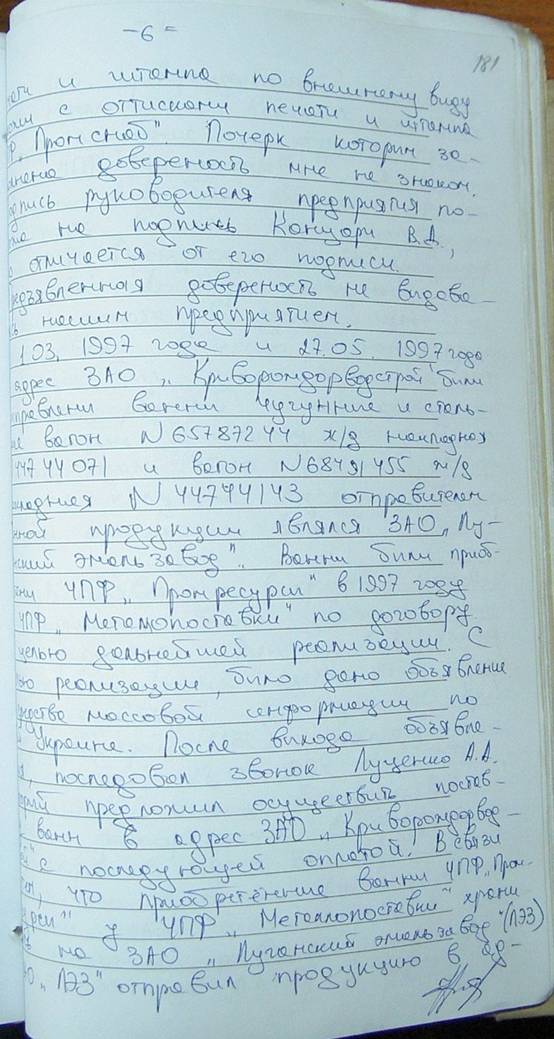 - 6 =
181
чати и штампа по внешнему виду
с оттисками печати и штампа
"Промснаб". Почерк которим за-
довереность мне не знаком.
подпись руководителя предприятия по-
на подпись Концари В.А.,
отличается от его подписи.
довереность не видава-
нашим предприятием.
1.03.1997 года и 27.05.1997 года
адрес ЗАО „Криворождорводстрой" били
ванни чугунние и сталь-
вагон N65787244 ж/д накладная
44744071 и вагон N68491455 ж/д
накладная N44744143 отправителем
продукции являлся ЗАО „Лу-
ский эмальзавод". Ванни били приоб-
ЧПФ „Промресурси" в 1997 году
ЧПФ „Металлопоставки" по договору
целью дальнейшей реализации. С
реализации, било дано объявление
массовой информации по
Украине. После вихода объявле-
последовал звонок Луценко А.А.
предложил осуществить постав-
ванн в адрес ЗАО „Криворождорвод-
с последующей оплатой. В связи
что приобретённые ванни ЧПФ „Пром-
у ЧПФ „Металлопоставки" храни
на ЗАО „Луганский эмальзавод" (ЛЭЗ)
„ЛЭЗ" отправил продукцию в ад-